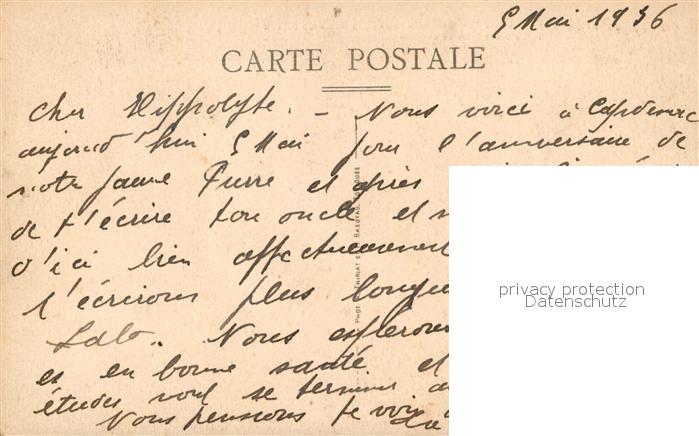 9 Mai 1936
CARTE POSTALE
Cher Hippolyte. - Nous voici à Capdenac
aujourd'hui 9 Mai pour l'anniversaire de
notre jeune Pierre et après
de t'écrire ton oncle et
d'ici bien affectueusement
t'écrirons plus longue
Nous espérons
es en bonne santé et
études vont se terminer
Nous pensons te voir
PHOT. THIRIAT ET BASUYAU, TOULOUSE
privacy protection
Datenschutz